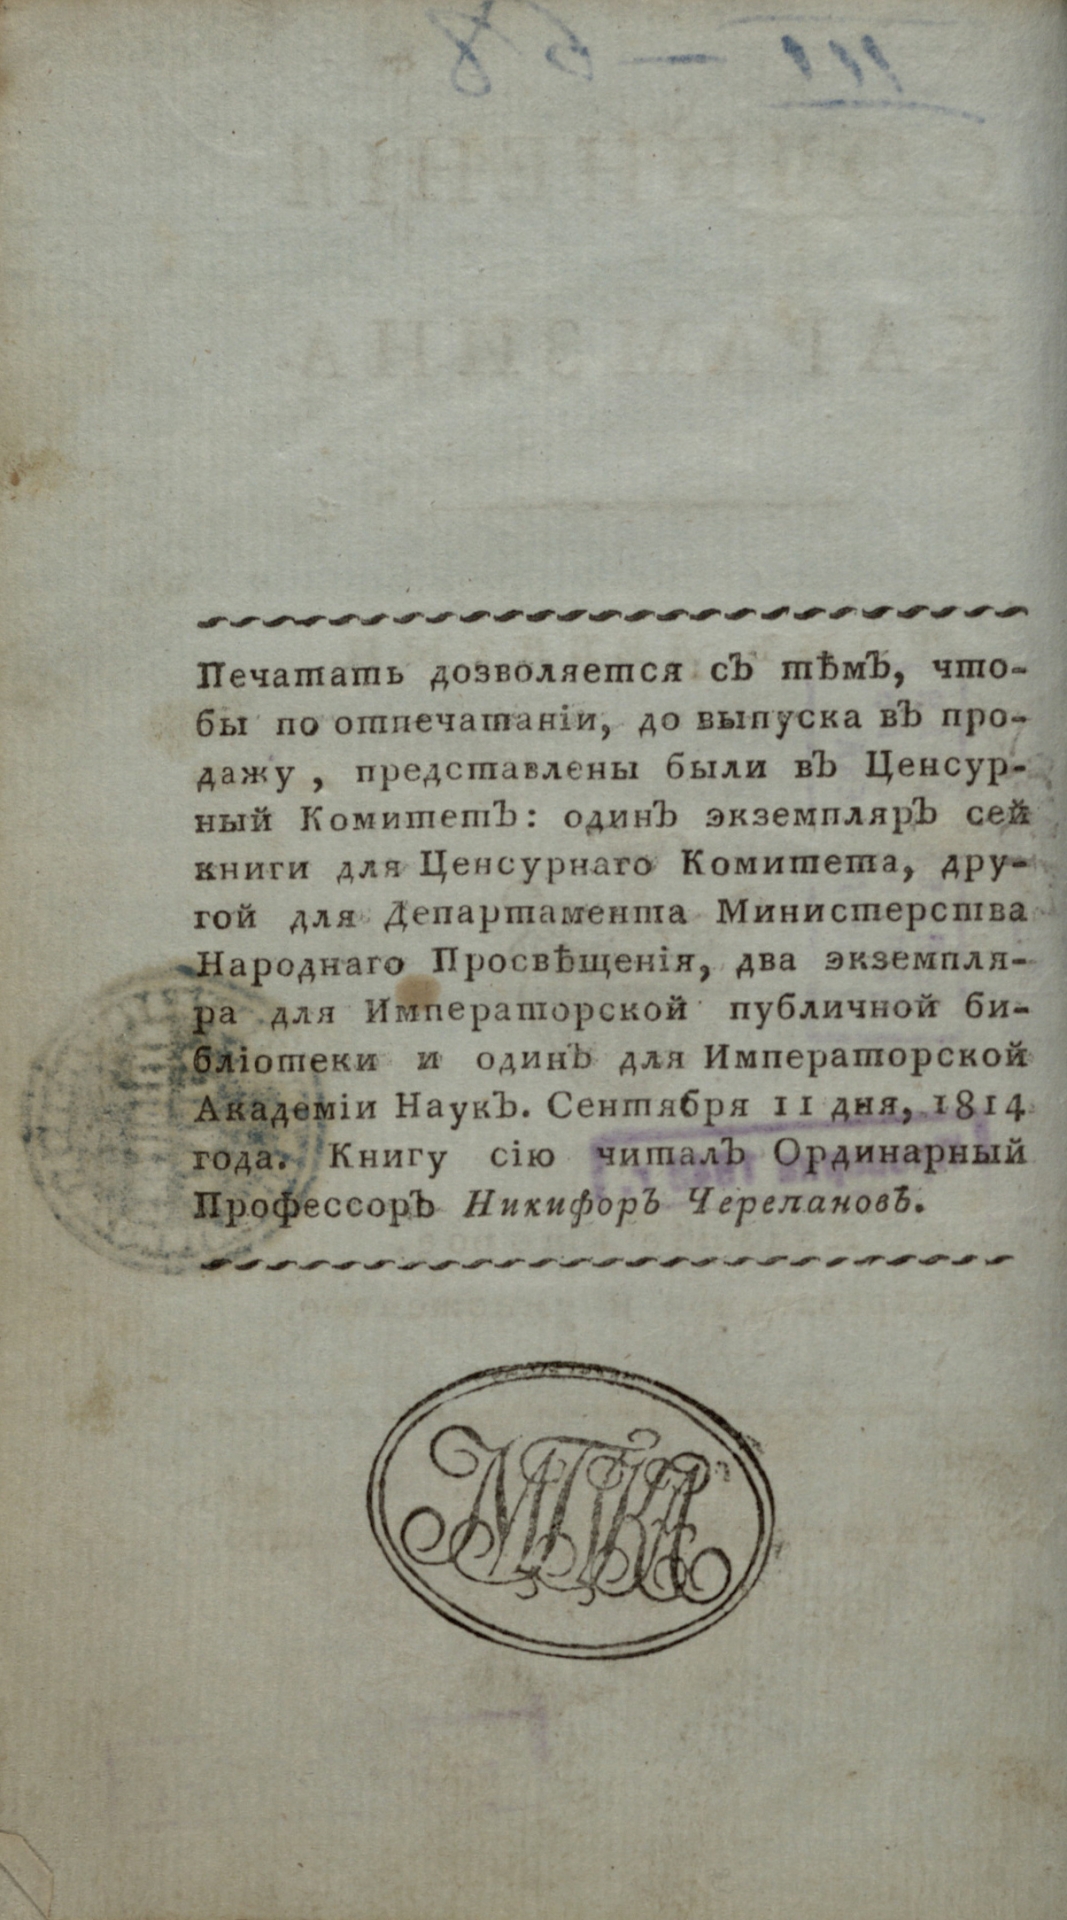 Печатать дозволяется съ тѣмъ, что-
бы по отпечатаніи, до выпуска въ про-
дажу, представлены были въ Ценсур-
ный Комитетъ: одинъ экземпляръ сей
книги для Ценсурнаго Комитета, дру-
гой для Департамента Министерства
Народнаго Просвѣщенія, два экземпля-
ра для Императорской публичной би-
бліотеки и одинъ для Императорской
Академіи Наукъ. Сентября 11 дня, 1814
года. Книгу сію читалъ Ординарный
Профессоръ Никифоръ Черепановъ.